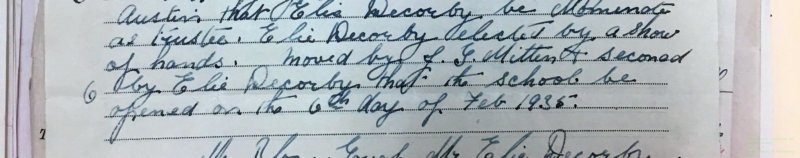 Austin that Elie Decorby be Nominate
as trustee. Elie Decorby elected by a show
of hands. Moved by J. G. Mitten & seconed
6 by Elie Decorby that the school be
opened on the 6th day of Feb 1935.
Mr Elie Decorby